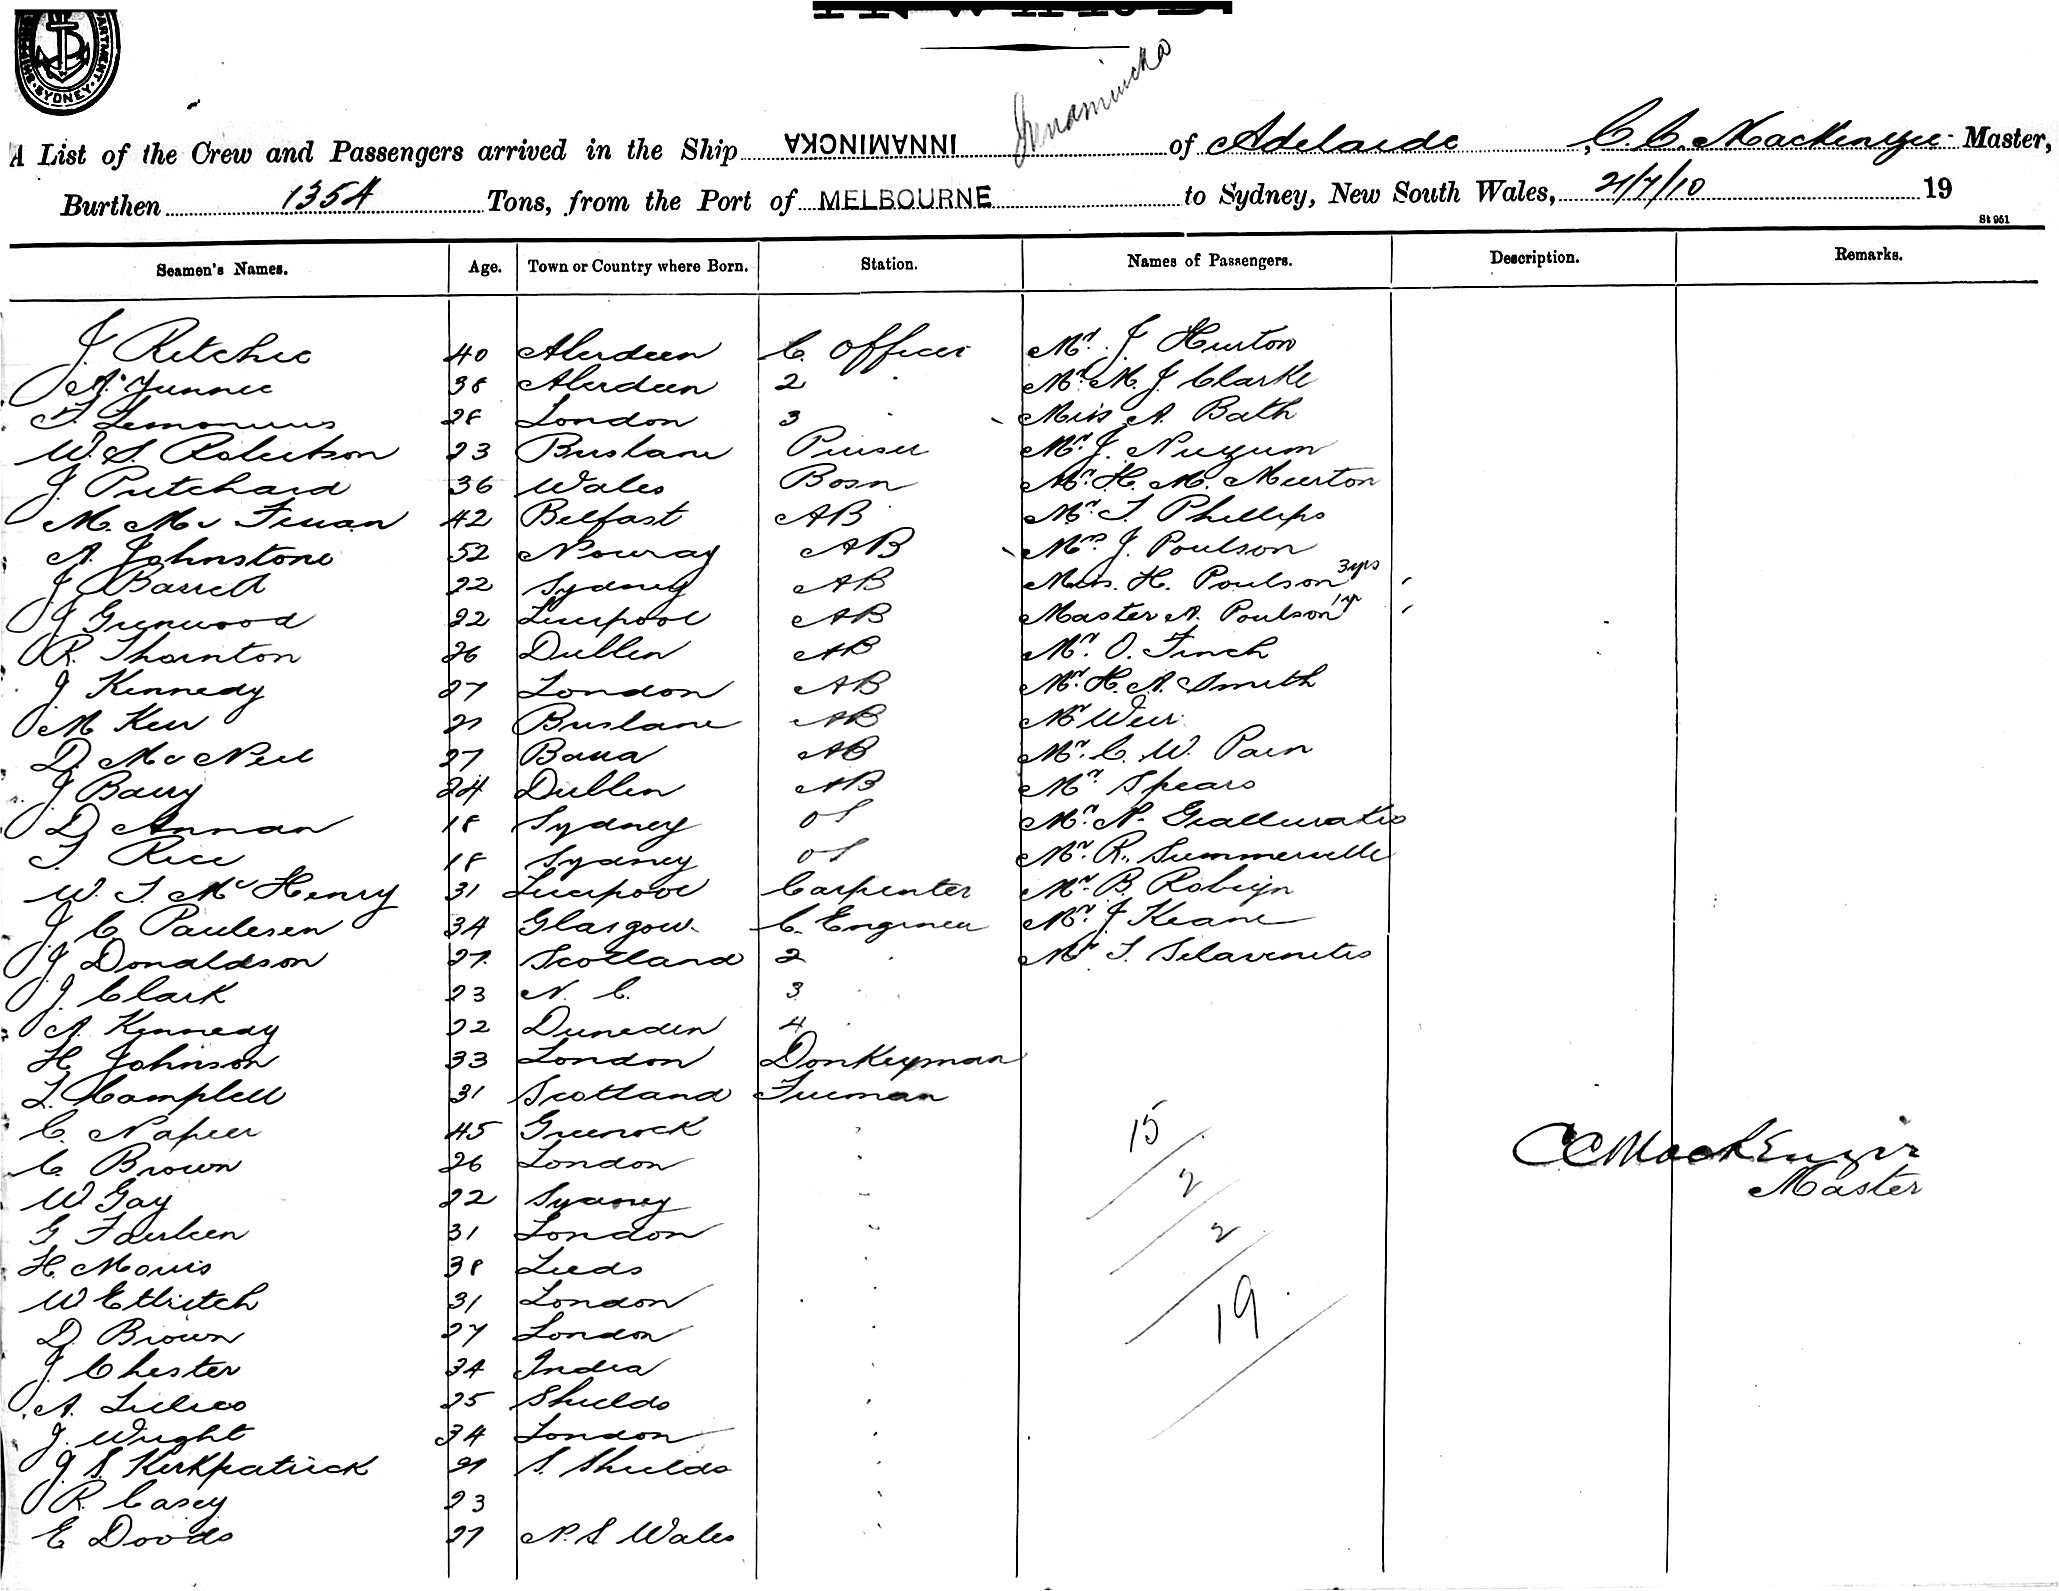 SYDNEY
INWARD.
Innamincka
A List of the Crew and Passengers arrived in the Ship INNAMINCKA of Adelaide, C. C. Mackenzie Master,
Burthen 1354 Tons, from the Port of MELBOURNE to Sydney, New South Wales, 21/7/10 19
St 951
Seamen's Names. Age. Town or Country where Born. Station. Names of Passengers. Description. Remarks.
J Ritchie 40 Aberdeen C. Officer Mr. J Hurton
A. 38 Aberdeen 2 " Mr. M. J Clarke
28 London 3 " Miss A. Bath
W. S. Robertson 23 Brisbane Purser Mr. J.
J Pritchard 36 Wales Bosn Mr. H. M. Meurton
M. Mc 42 Belfast AB Mr. T Phillips
A. Johnstone 52 AB Mrs. J. Poulson
J Barrett 22 Sydney AB Miss. H. Poulson 3yrs
J Greenwood 22 Liverpool AB Master A. Poulson 1yr
R. Thornton 26 Dublin AB Mr. O. Finch
J Kennedy 27 London AB Mr. H. A. Smith
M Kerr 21 Brisbane AB Mr Weir
D. Mc Neil 27 Barra AB Mr. C. W. Pain
J Barry 24 Dublin AB Mr Spears
D Annan 18 Sydney OS Mr. N.
T Rice 18 Sydney OS Mr. R. Summerville
W. T. Mc Henry 31 Liverpool Carpenter Mr. B.
J C Paulesen 34 Glasgow. C. Engineer Mr. J Keane
J Donaldson 27. Scotland 2 " Mr T.
J. Clark 23 N. C. 3 "
A. Kennedy 22 Dunedin 4 "
H Johnson 33 London Donkeyman
Campbell 31 Scotland Fireman
C. Napier 45 Greenock " 15
C. Brown 26 London "
W Gay 22 Sydney " 2
G 31 London " 2
H. Morris 38 Leeds "
W Ettritch 31 London " 19
D. Brown 27 London "
J Chester 34 India "
A. 25 Shields "
J. Wright 34 London "
J. S. Kirkpatrick 21 S. Shields "
R. Casey 23 "
E Doods 27 N. S Wales "
CC MacKenzie
Master